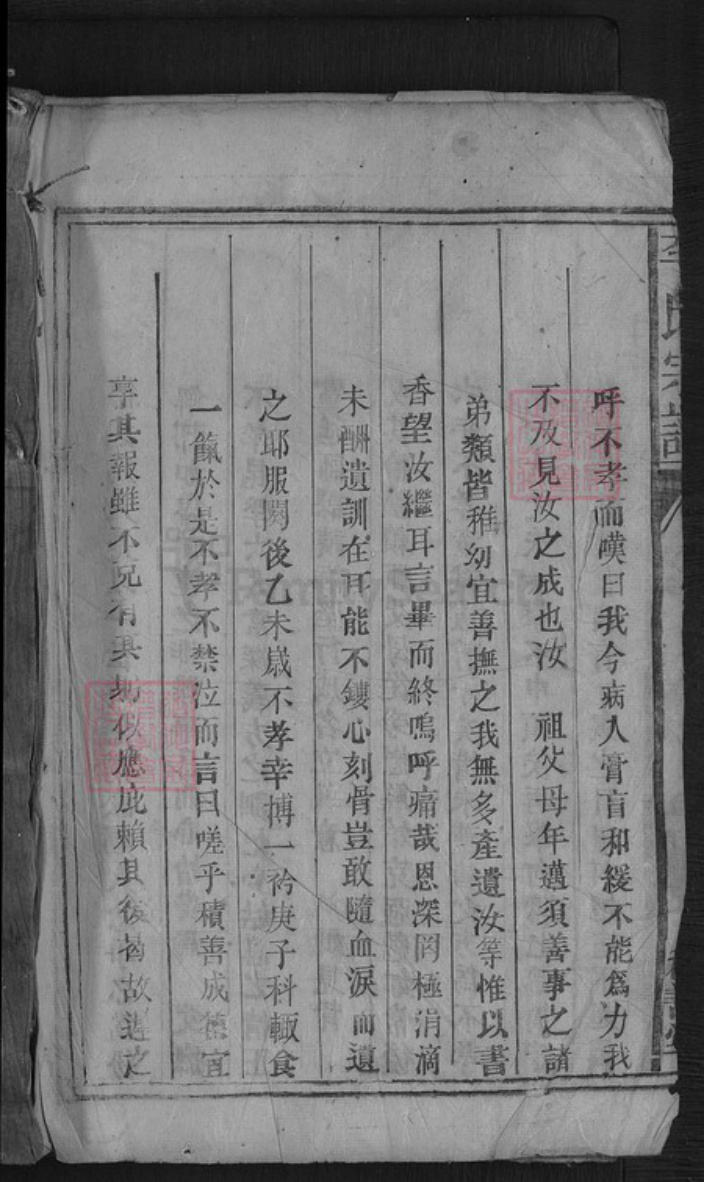 氏宗譜
呼不孝而嘆曰我今病入膏盲和緩不能爲力我
不及見汝之成也汝 祖父母年邁須善事之諸
弟類皆稚幼宜善撫之我無多產遺汝等惟以書
香望汝繼耳言畢而終嗚呼痛哉恩深罔極涓滴
未酬遺訓在耳能不鏤心刻骨豈敢隨血淚而遺
之耶服闋後乙未歲不孝幸博一衿庚子科輙食
一餼於是不孝不禁泣而言曰嗟乎積善成德宜
享其報雖不克有其 似應庇賴其後曷故遲之